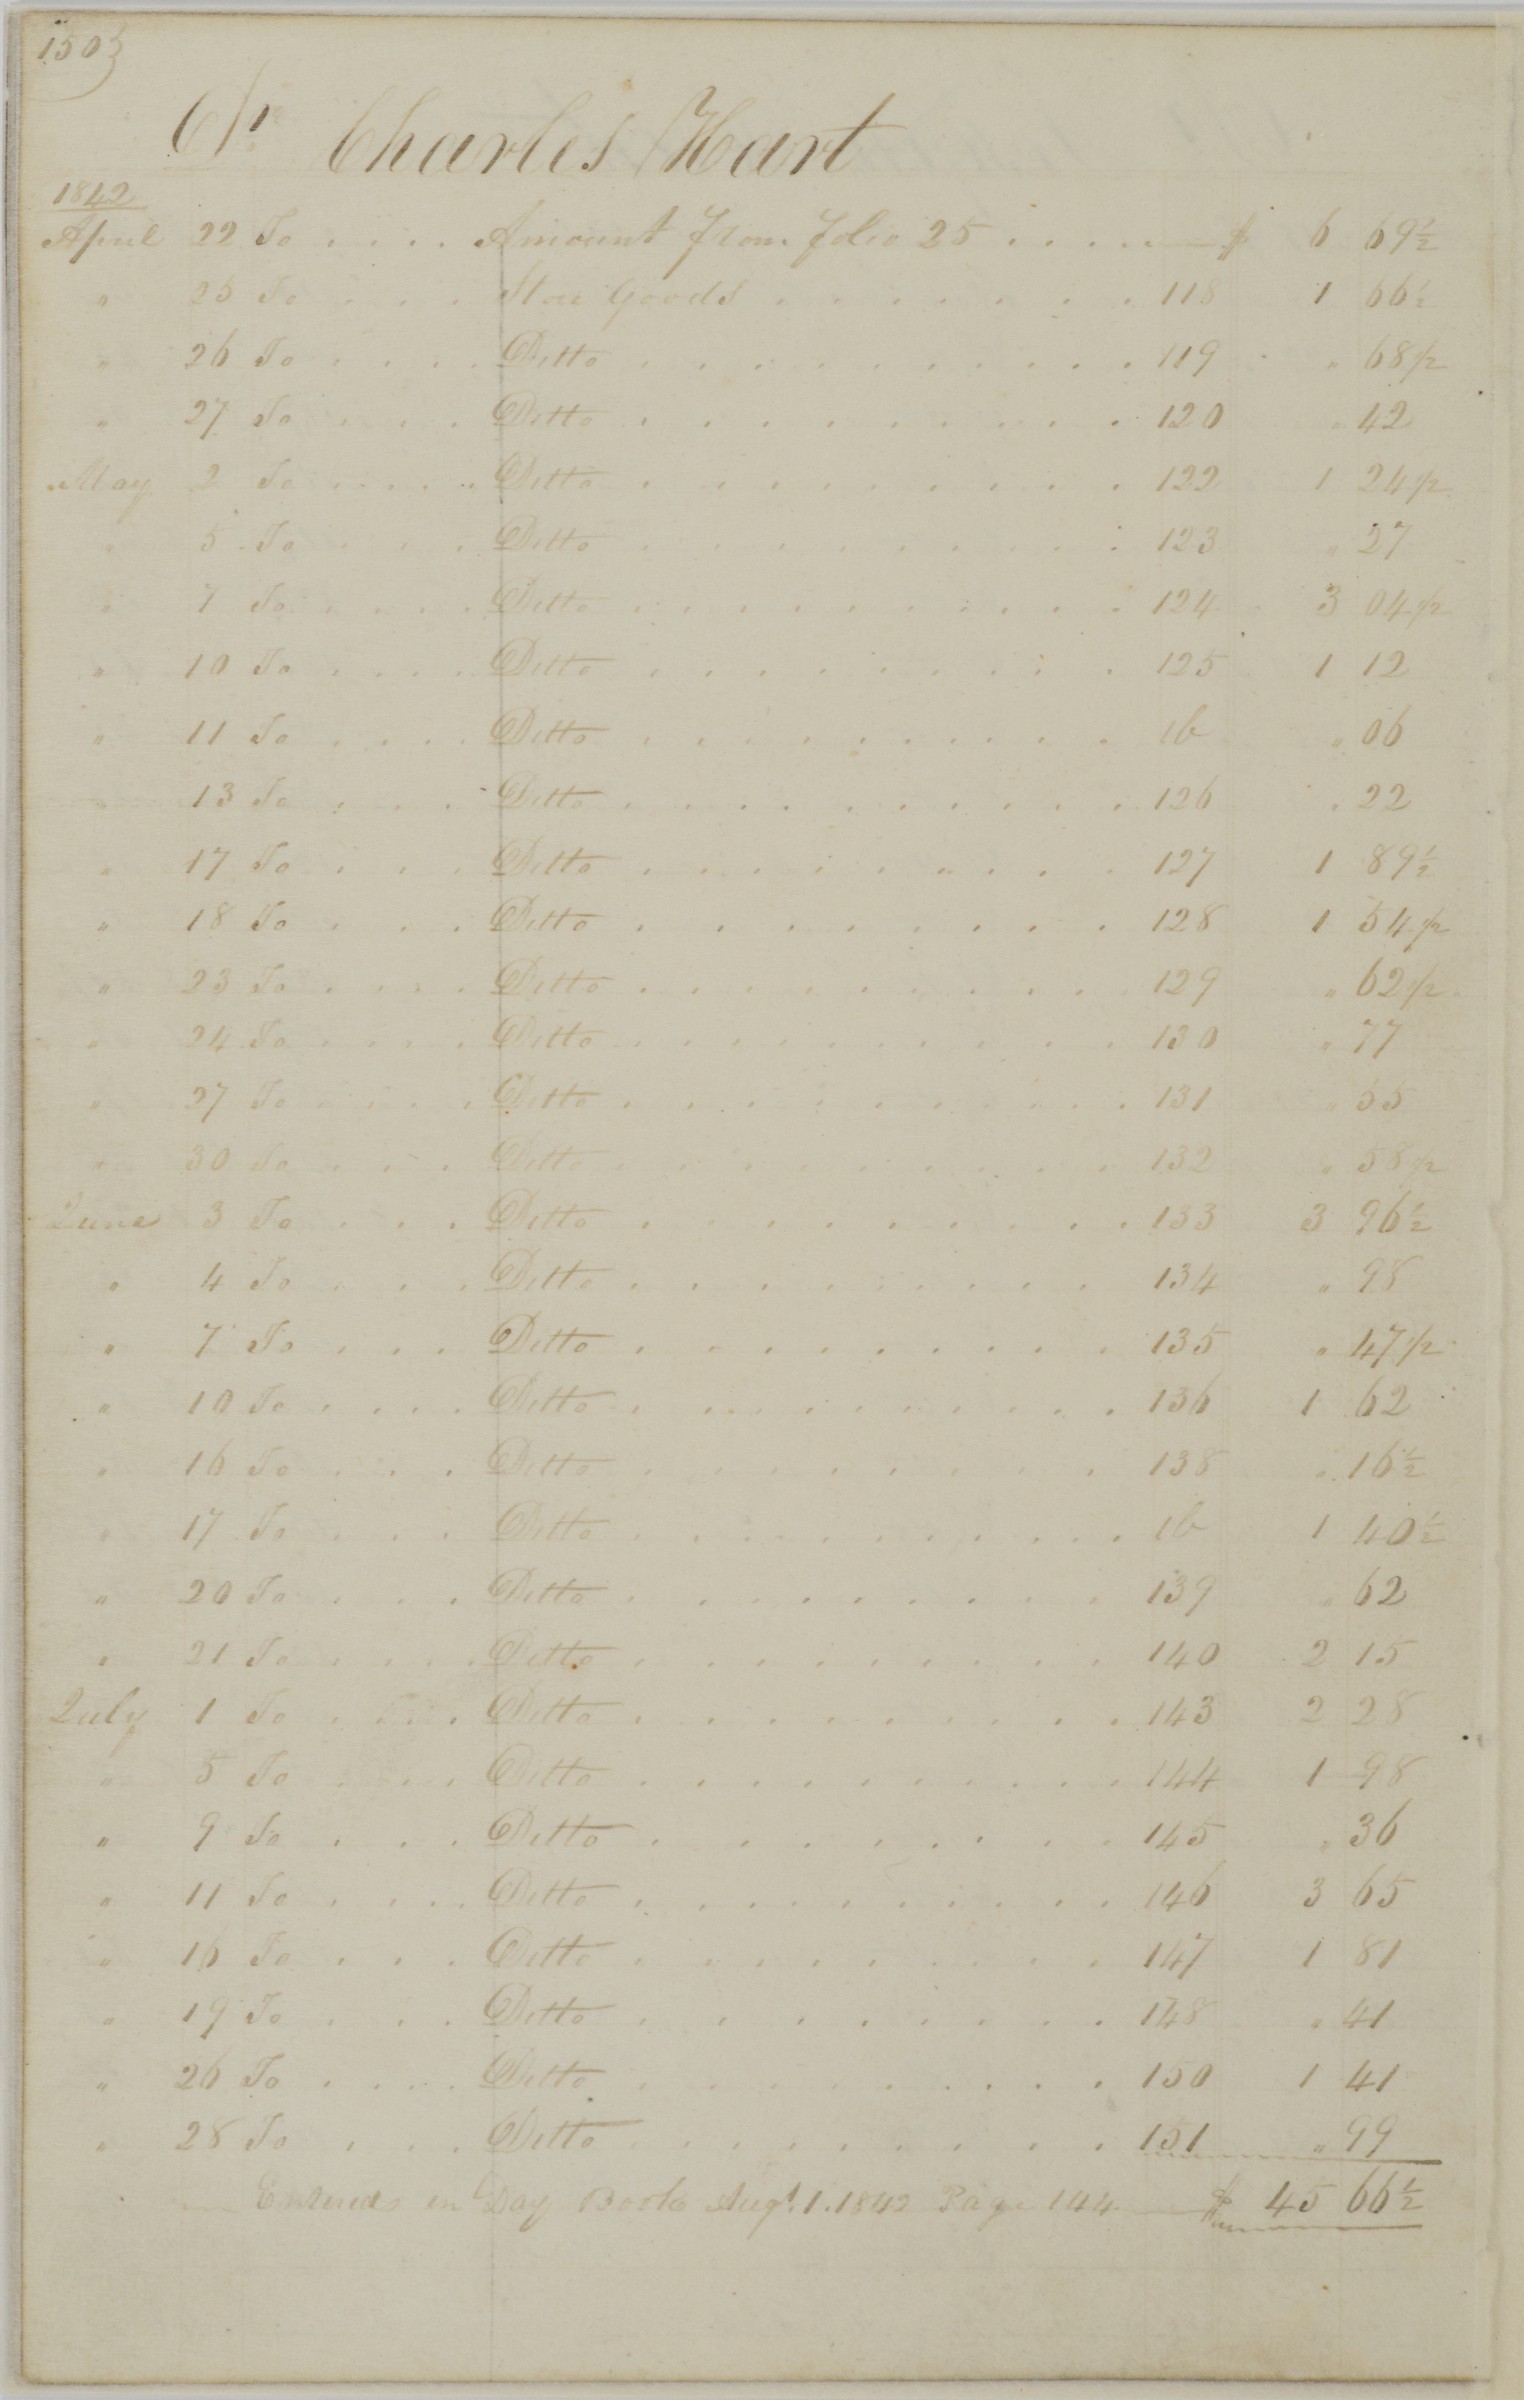 150
C/r Charles Hart
1842
April 22 To . . . . Amount from folio 25 . . . . $ 6 69½
" 25 To . . . . Store Goods . . . . . . . 118 1 66½
" 26 To . . . . Ditto . . . . . . . . . . 119 " 68½
" 27 To . . . . Ditto . . . . . . . . . . 120 " 42
May 2 To . . . . Ditto . . . . . . . . . 122 1 24½
" 5 To . . . . Ditto . . . . . . . . . . 123 " 27
" 7 To . . . . Ditto . . . . . . . . . . 124 3 04½
" 10 To . . . . Ditto . . . . . . . . . 125 1 12
" 11 To . . . . Ditto . . . . . . . . . ib " 06
" 13 To . . . . Ditto . . . . . . . . . . 126 " 22
" 17 To . . . Ditto . . . . . . . . . 127 1 89½
" 18 To . . . Ditto . . . . . . . . . 128 1 54½
" 23 To . . . . Ditto . . . . . . . . . . 129 " 62½
" 24 To . . . . Ditto . . . . . . . . . . 130 " 77
" 27 To . . . . Ditto . . . . . . . . . . 131 " 55
" 30 To . . . . Ditto . . . . . . . . . . 132 " 58½
June 3 To . . . Ditto . . . . . . . . . 133 3 96½
" 4 To . . . Ditto . . . . . . . . . 134 " 98
" 7 To . . . Ditto . . . . . . . . . 135 " 47½
" 10 To . . . . Ditto . . . . . . . . . . 136 1 62
" 16 To . . . Ditto . . . . . . . . . 138 " 16½
" 17 To . . . Ditto . . . . . . . . . . ib 1 40½
" 20 To . . . Ditto . . . . . . . . . 139 " 62
" 21 To . . . . Ditto . . . . . . . . . 140 2 15
July 1 To . . . . Ditto . . . . . . . . . 143 2 28
" 5 To . . . . Ditto . . . . . . . . . . 144 1 98
" 9 To . . . Ditto . . . . . . . . . 145 " 36
" 11 To . . . . Ditto . . . . . . . . . . 146 3 65
" 16 To . . . Ditto . . . . . . . . . 147 1 81
" 19 To . . . Ditto . . . . . . . . . 148 " 41
" 26 To . . . . Ditto . . . . . . . . . 150 1 41
" 28 To . . . Ditto . . . . . . . . . 151 " 99
Entered in Day Book Augt. 1. 1842 Page 144 $ 45 66½